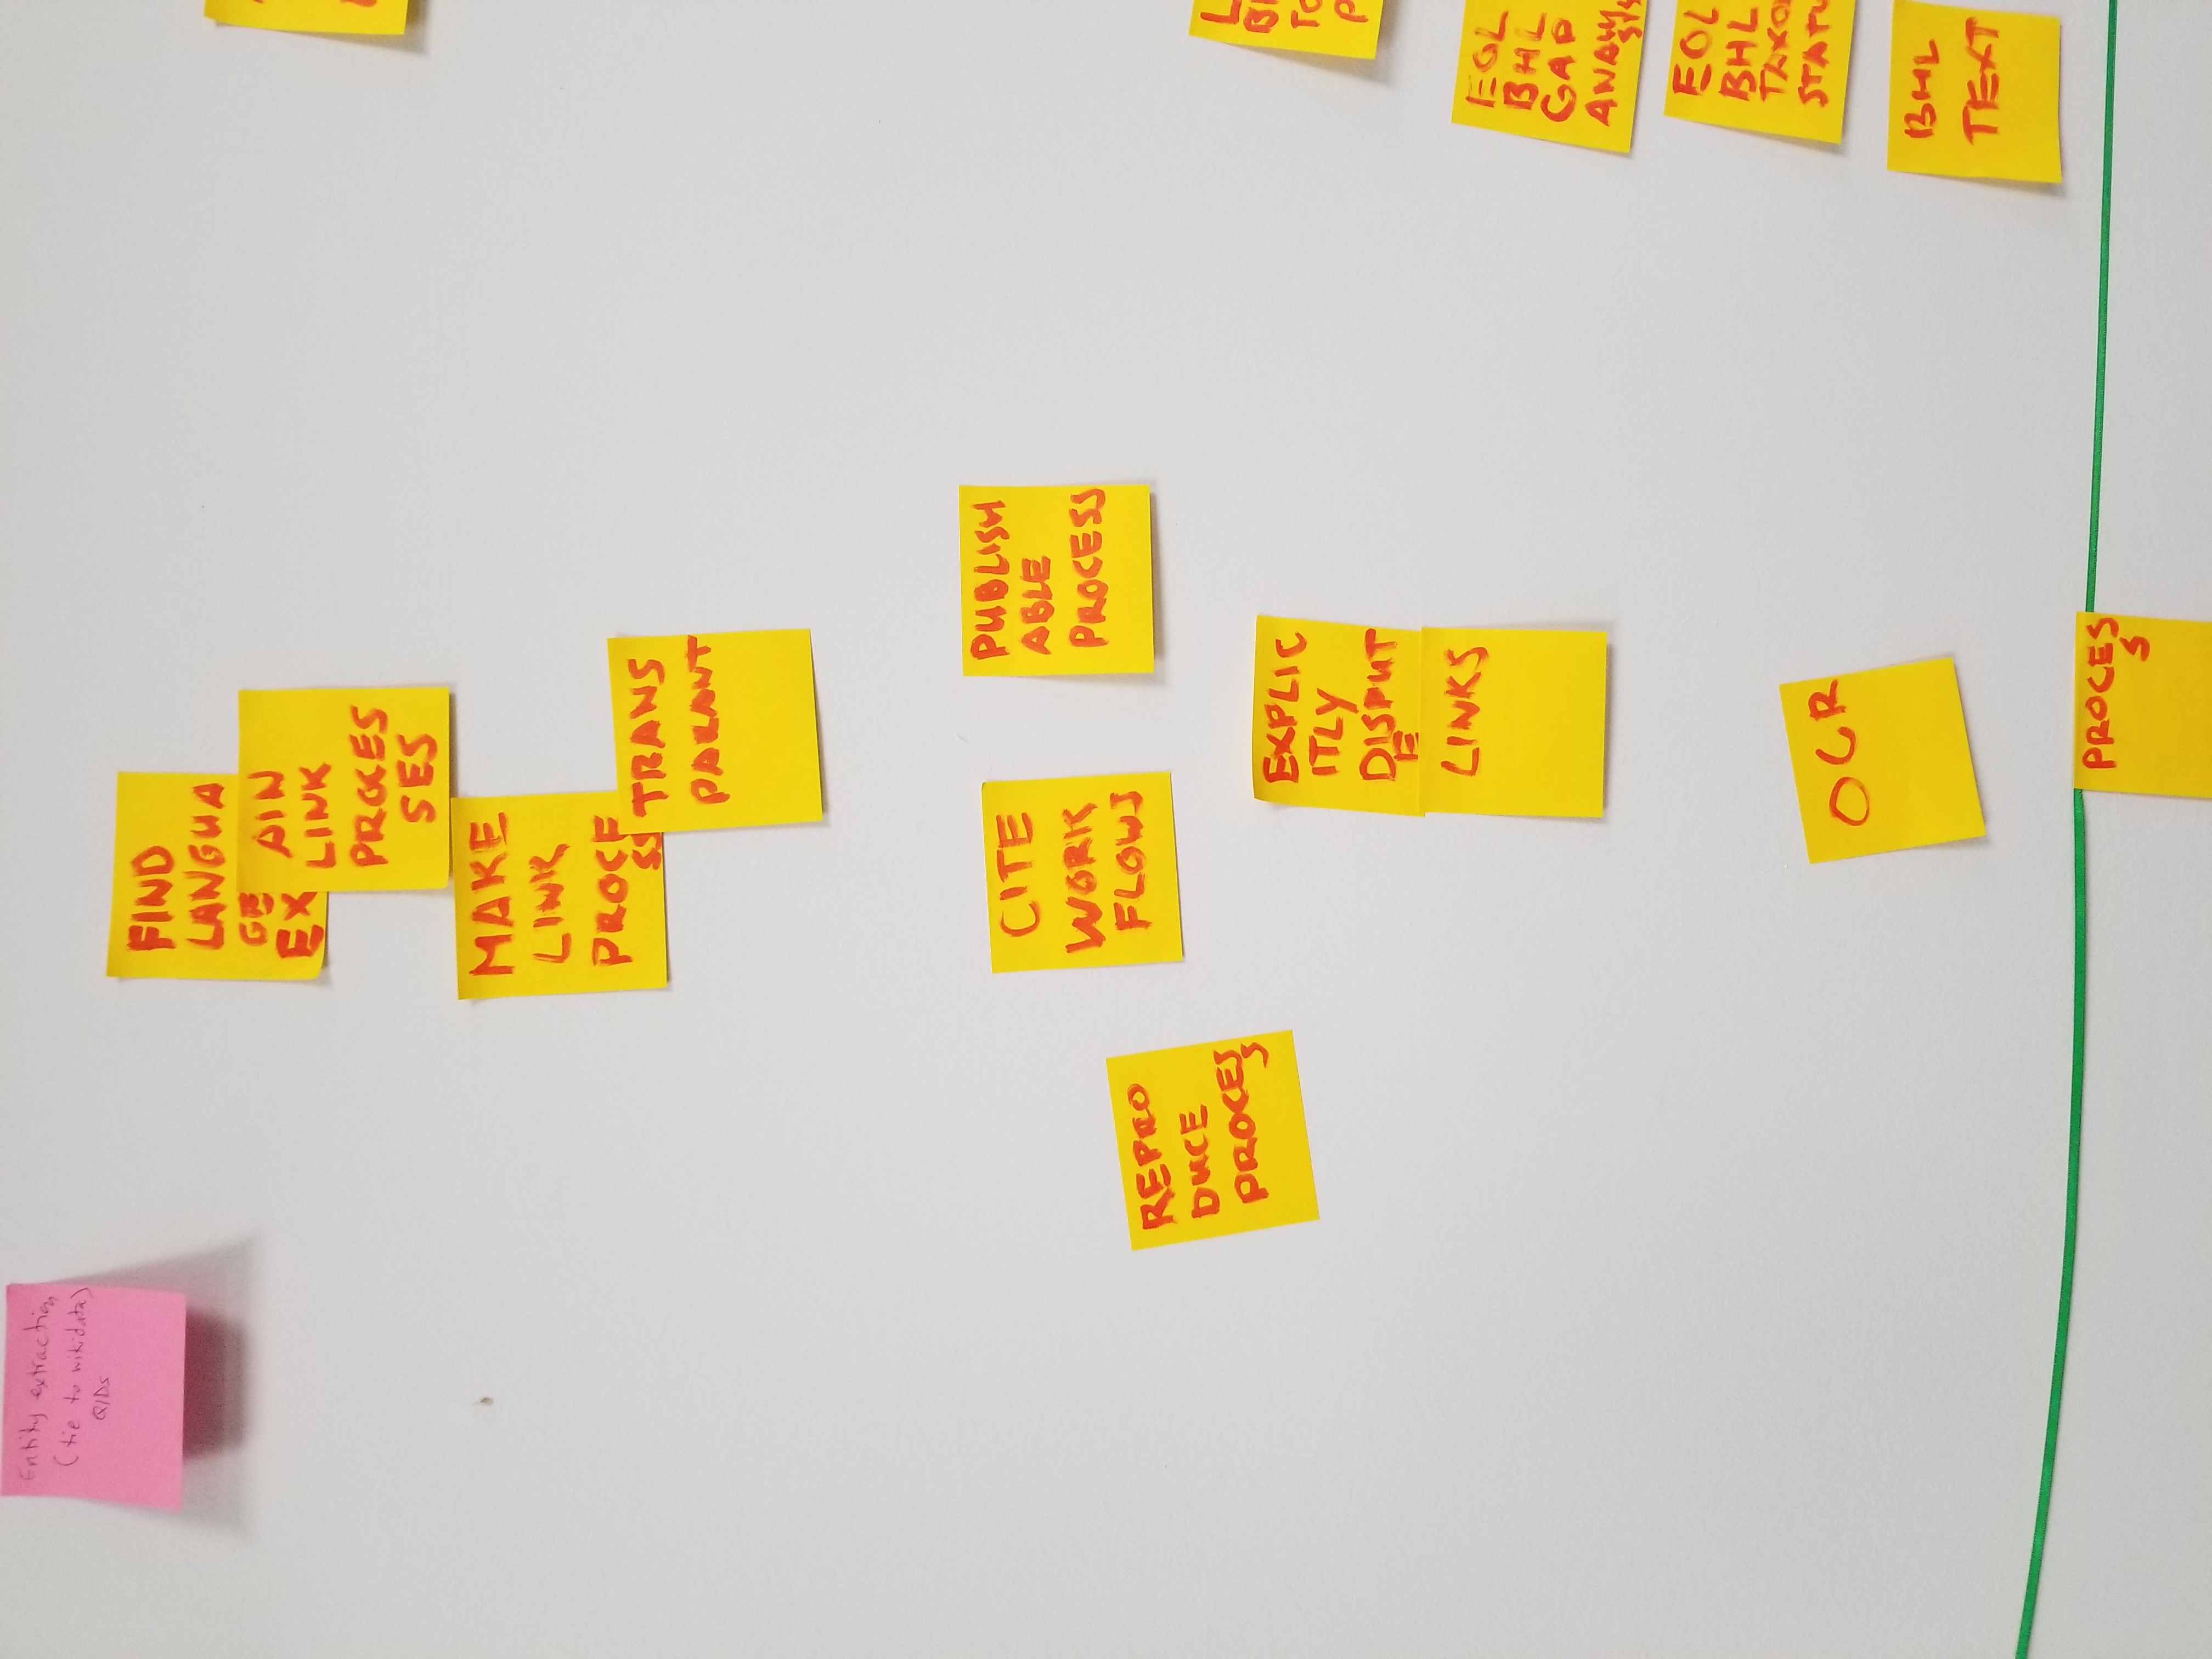 Entity extraction
(tie to wikidata)
QIDs
FIND
LANGUA
GE
EX
AIN
LINK
PROCES
SES
MAKE
LINK
PROCE
SS
TRANS
PARANT
CITE
WORK
FLOWS
PUBLISH
ABLE
PROCESS
REPRO
DUCE
PROCES
S
EXPLIC
ITLY
DISPUT
E
LINKS
EOL
BHL
GAP
ANALY
SIS
EOL
BHL
TAXO
STATU
OCR
BHL
TEXT
PROCES
S